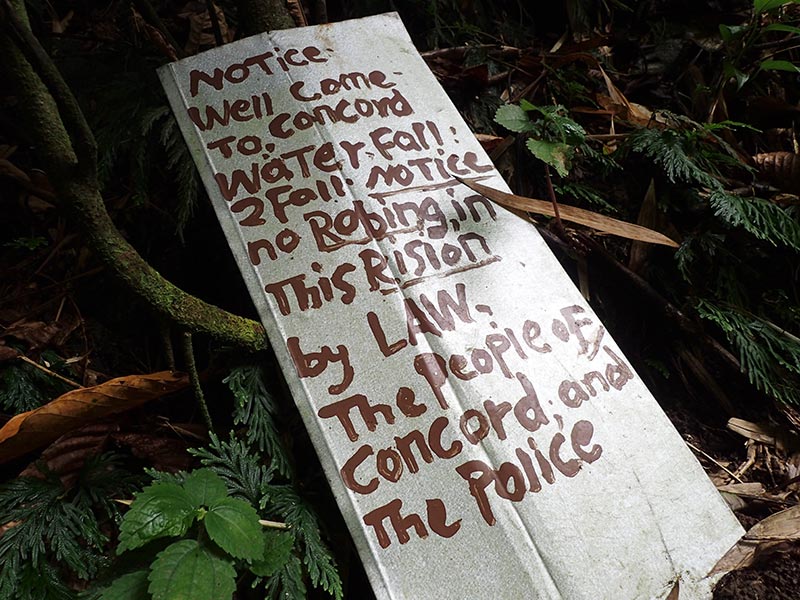 NOTice.
Well come.
To, concord
WaTer, Fall:
2 Fall: NOTice
no Robing, in
This Rision
by LAW.
The People of
concord, and
The Police